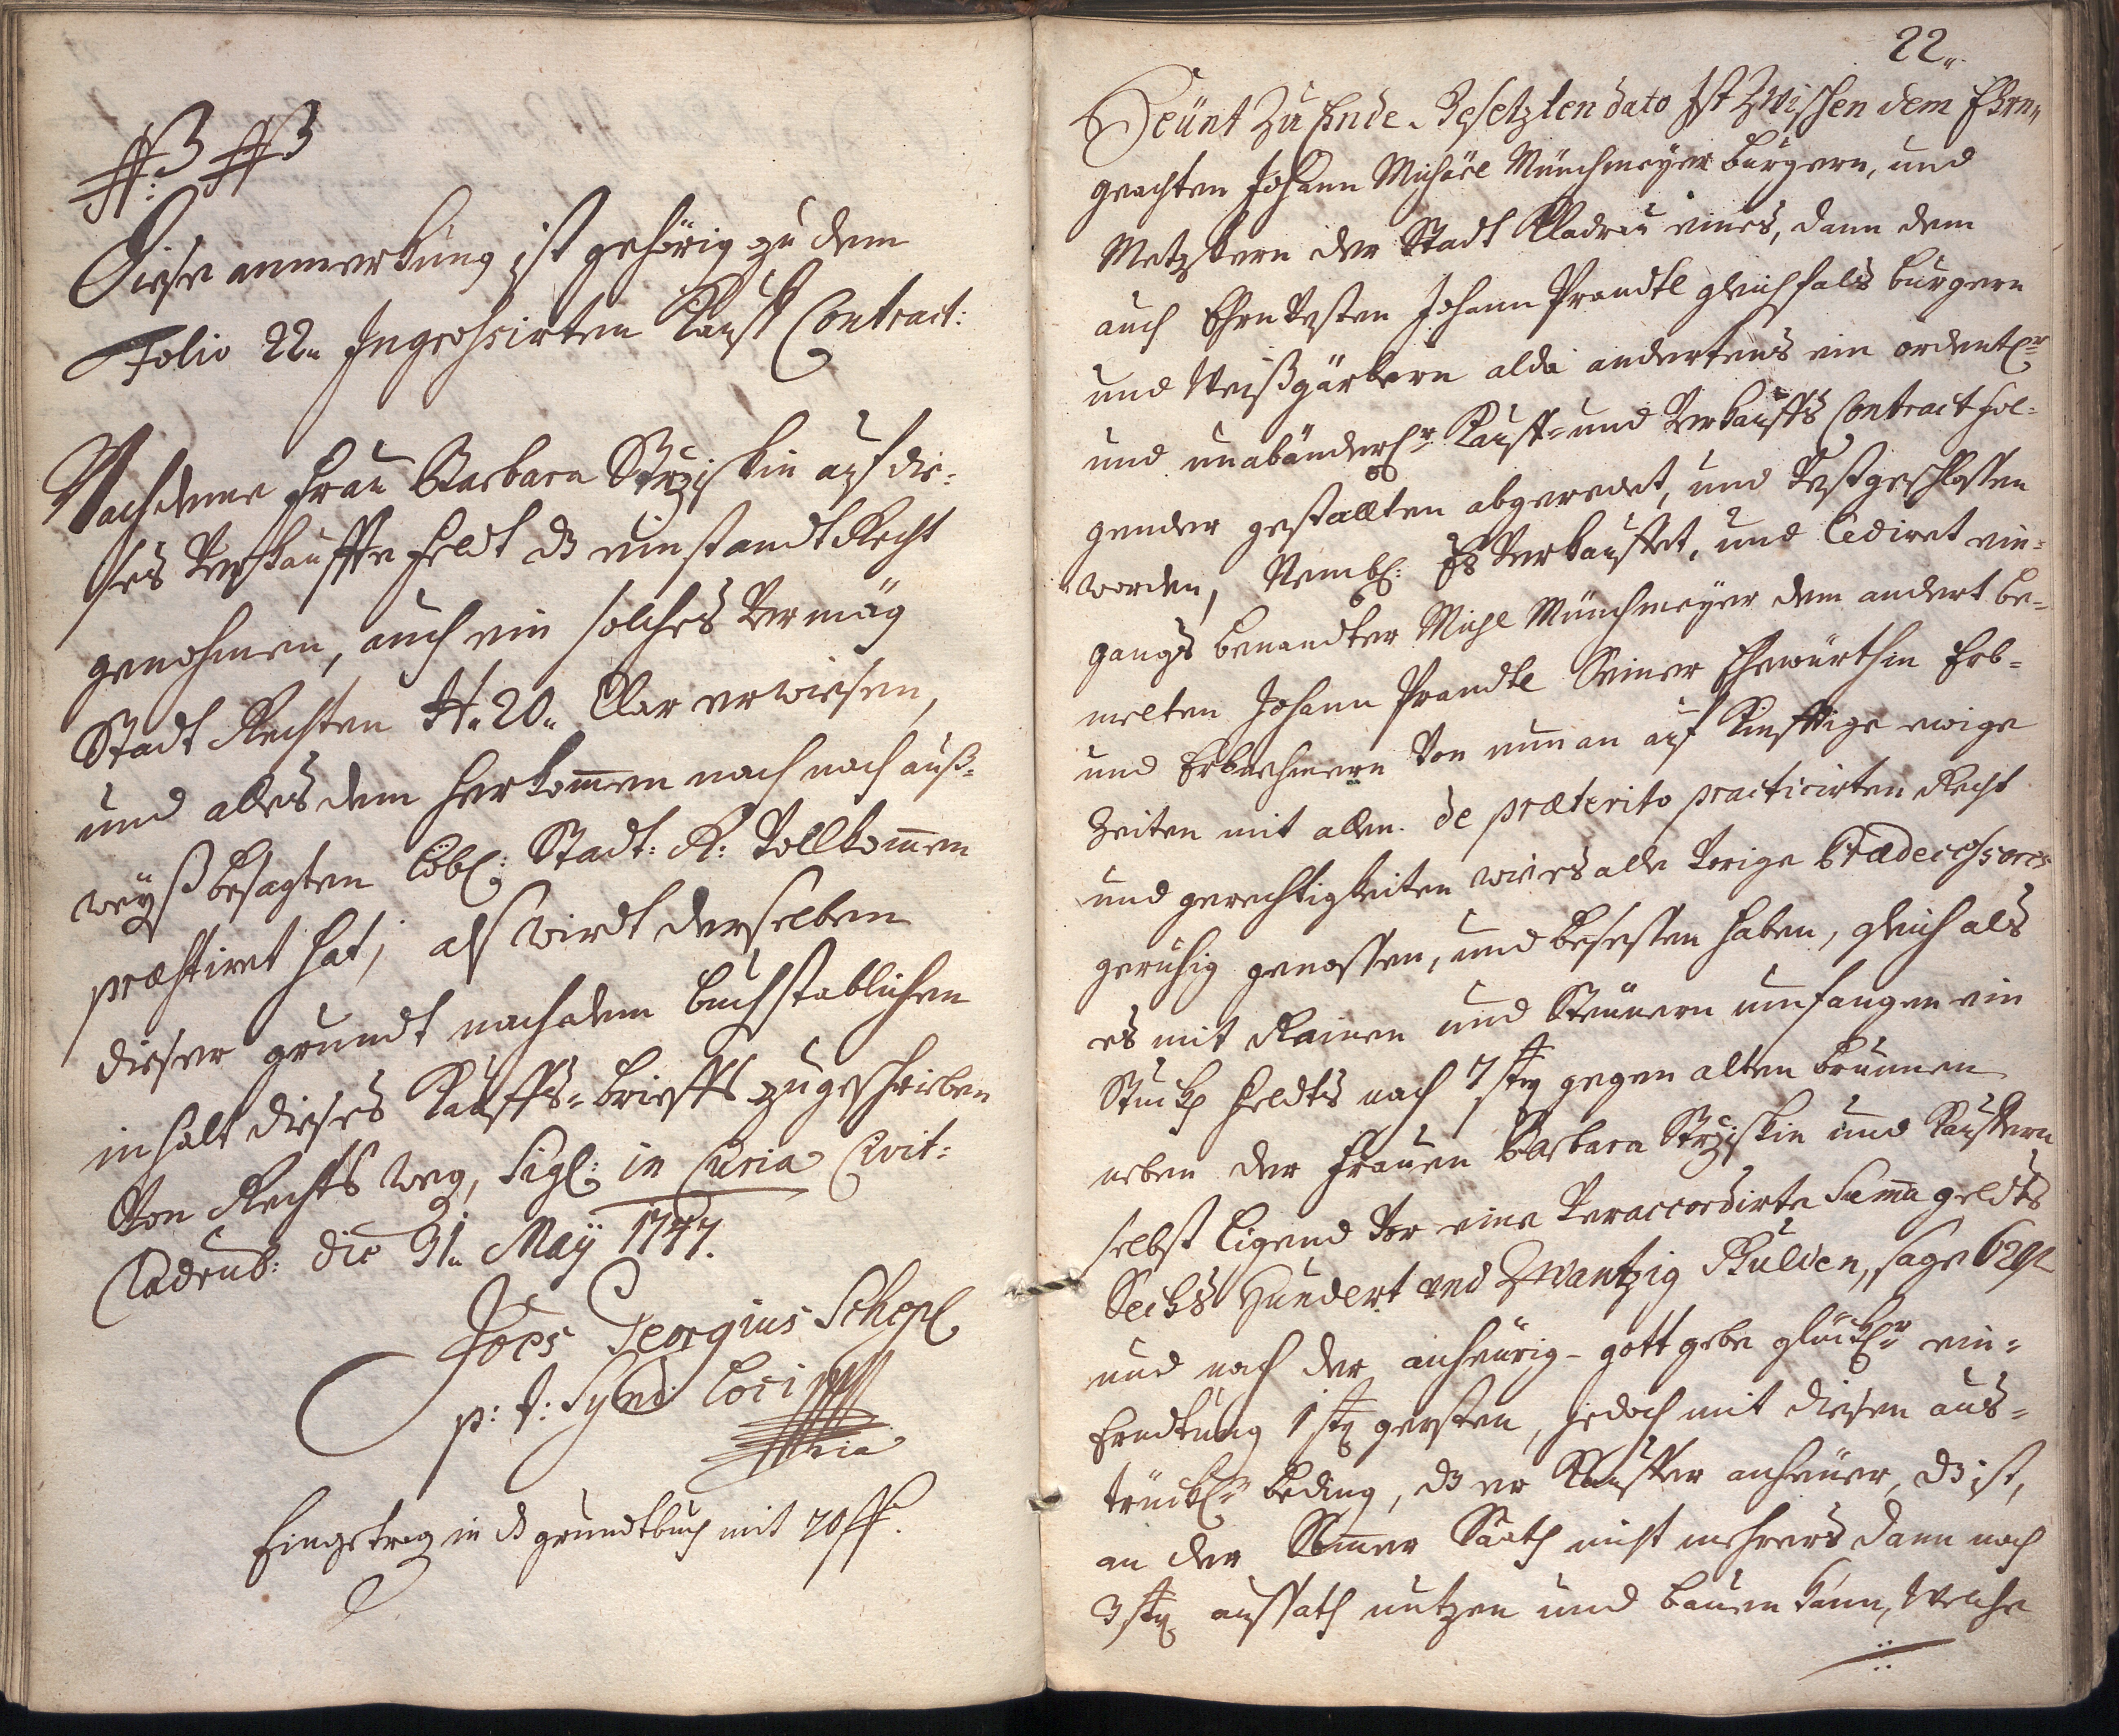 Diese anmerkung ist gehörig zu dem
Folio 22„ Ingrossirten Kauff Contract:
Nachdeme Frau Barbara auf die¬
ses Verkauffte Feldt dz einstandt Recht
genohmen, auch ein solches Vermög
Stadt Rechten 20„ Clar erwiesen,
und alles dem herkom̄en nach nach auß¬
weyß besagten löbl: Stadt: R: Vollkom̄en
præstiret hat; alß Wirdt derselben
dieser grundt nach dem buchstablichen
inhalt dieses Kauffs=brieffs zugeschrieben
Von Rechts Weg, Sigl: in Curia Civit:
Cladrub: die 31„ Maÿ 1747.
Joes Georgius Schepl
p: t: Synd: Loci
mpria
Eingetrag in dz grundtbuch mit 20
22„
Heünt Zu Ende Gesetzten dato Ist Zwischen dem Ehrn„
geachten Johann Michäel Münchmeÿer burgern, und
Metzgern der Stadt Kladrau eines, dann dem
auch Ehrn Vesten Johann Prandtl gleichfals burgern
und Weißgärbern alda andertens ein ordentlr
und unabänderlr Kauff= und Verkauffs Contract fol¬
gender gestallten abgeredet, und Vestgeschlossen
worden, Nembl: Es Verkauffet, und Cediret ein¬
gangs benandter Michl Münchmeÿer dem andert be¬
melten Johann Prandtl Seiner Ehewürthin Erb¬
und Erbnehmern Von nun an auf Künfftige ewige
Zeiten mit allen de præterito practicirten Recht
und gerechtigkeiten wie es alle Vorige Prædecessores
geruhig genossen, und besessen haben, gleich als
es mit Rainen und Steinern umfangen ein
Stuckh Feldts nach 7 str gegen alten brunnen
neben der Frauen Barbara und Kauffern
selbst ligend Vor eine Veraccordirte Suma geldts
Sechs Hundert und Zwantzig Gulden, sage 620
und nach der anheürig- gott gebe glücklr ein¬
Erndtung 1 str gersten, jedoch mit diesen aus¬
trückl: beding, dz er Kauffer anheüer, dz ist,
an der Som̄er Saath nicht mehrers dann nach
3 str aussath nutzen und bauen kann, Welche